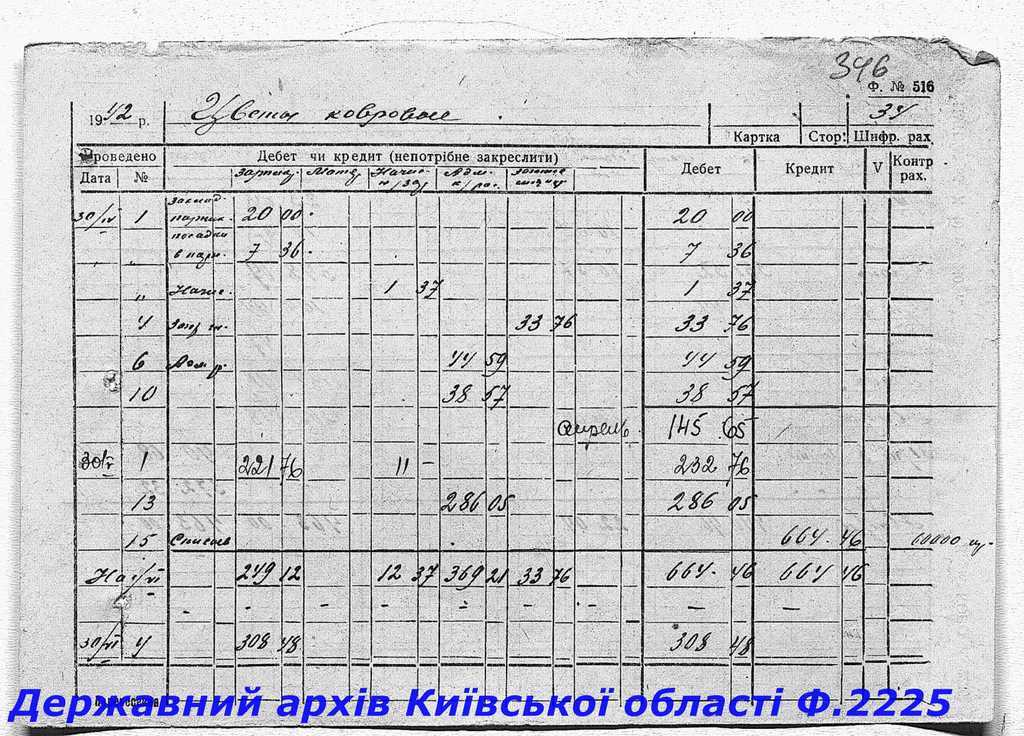 346
Ф. № 516
1942 р. Цветы ковровые 34
Картка Стор. Шифр. рах
Проведено Дебет чи кредит (непотрібне закреслити) Дебет Кредит V Контр рах.
Дата №
30/IV 1 20 00 20 00
посадки
" " в парн. 7 36 7 36
" Начис. 1 37 1 37
4 33 76 33 76
6 44 59 44 59
10 38 57 38 57
апрель 145 65
30/V 1 221 76 11 – 232 76
13 286 05 286 05
15 Списыв 664 46 10000
На 1/VI 249 12 12 37 369 21 33 76 664 46 664 46
– – – – – – – –
30/VI 4 308 48 308 48
Державний архів Київської області Ф.2225